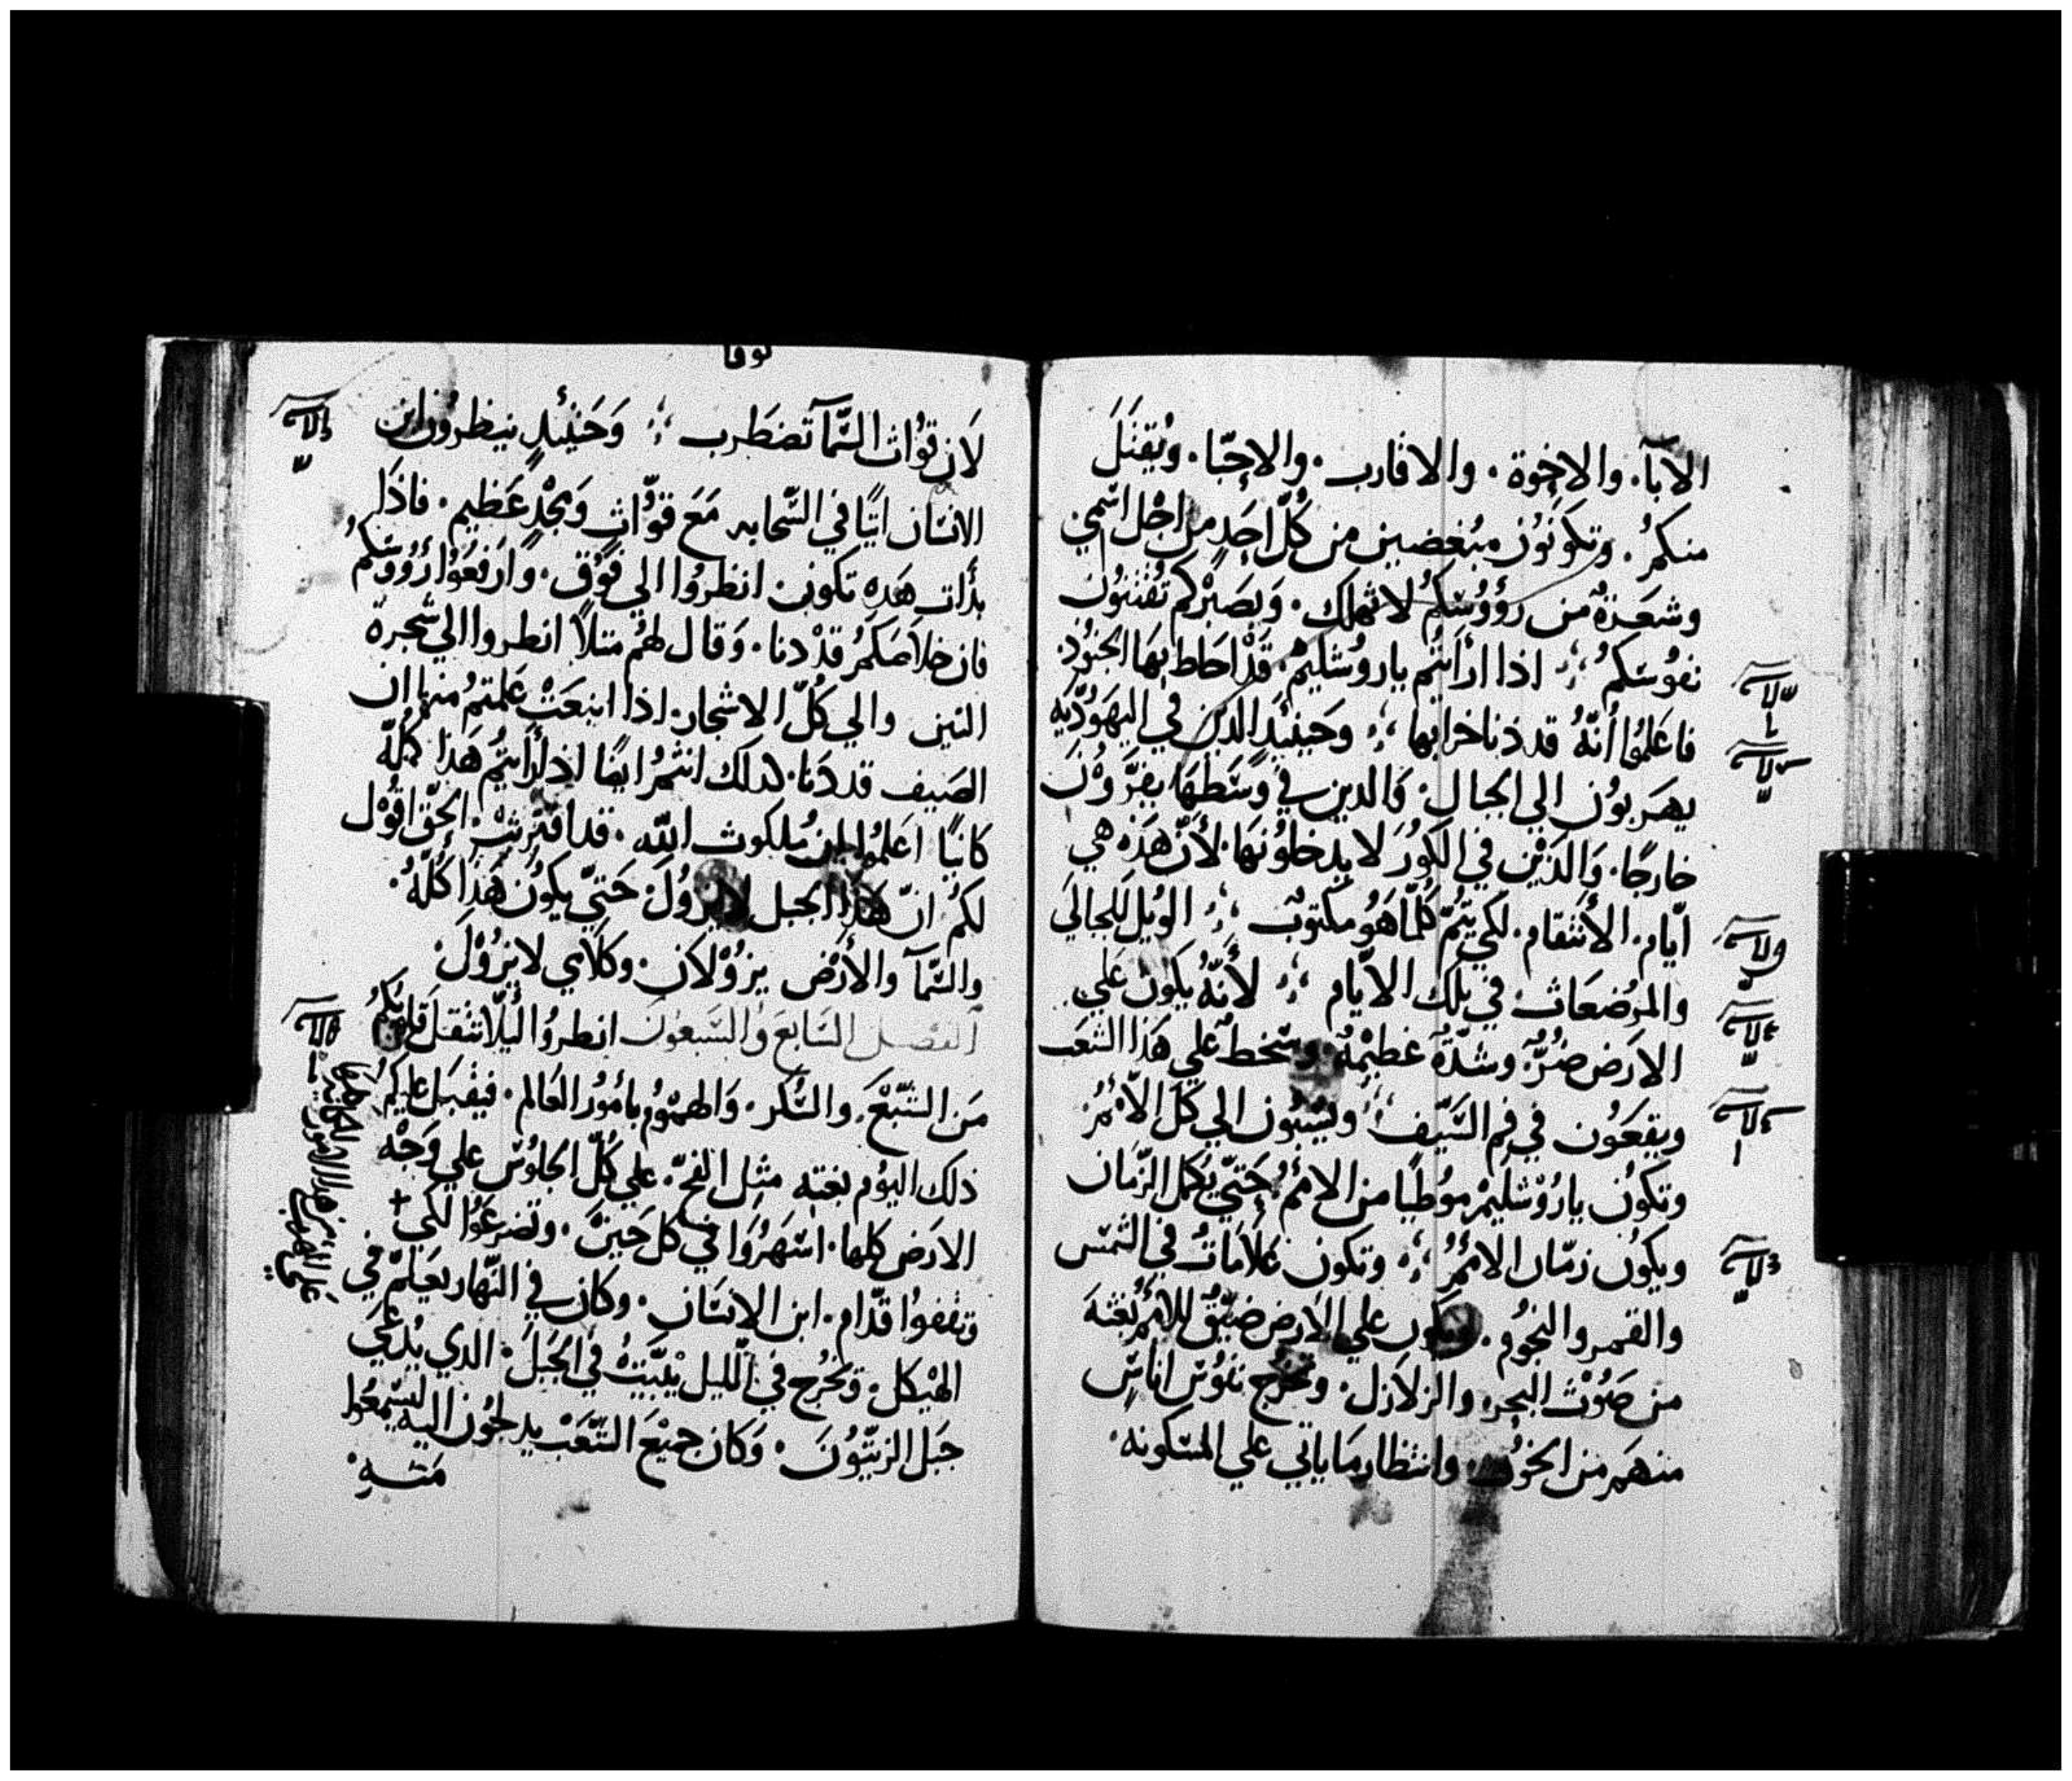 الابآ. والاخوة. والاقارب. والاحبّا. ويُقتَلَ
منكمُ. وتكوَنوُن مبُغضين من كُلّ احَدٍ من اجْل اسْمي
وشعَرةٌ من رؤوُسَكمُ لا تهلك. وَبصَبْركم تُقْتنوُن
نفوُسَكمُ؛ اذا ارأيتُم ياروُشليمْ. قَدْ احَاط بهَا الجنوُد.
فاعَلموُا أنّهُ قد دنا خرابها؛ وحَينيئدٍ الدين في اليهَوُديّه
يهَربوُن الي الجبال. وَالدين في وسَطهَا يفرّوْن
خارجًا. وَالدَيْن في الكوُرَ لا يدخلوُنهَا. لأنّ هَذه هي
ايّام. الأنتقام. لكي يتمُّ كُلّمَا هَوُ مكتوبٌ؛ الويْل للحبالي
والمرُضعَاتْ في تلك الايّام؛ لأنّهُ يكون علي
الارَض ضُرٌّ. وشدّةٌ عظيْمةٌ. وسخطٌ علي هَذا الشعَب
ويقعَوُن في فم السَيّف؛ ويسُبَوُن الي كلّ الأمُم
وتكوُن يارُوْشليَمْ موُطيًا من الامُم. حَتيّ يكمل الزّمَان
ويكوُن زمّان الامُم؛ وتكون عَلاَمَاتُ في الشمَس
والقمر والنجوُم. ويكون علي الارَض ضيْقٌ للامُم بغتةَ
من صَوُتْ البحر. والزلاَزل. وتخرُج نفوُسْ اناسٍ
منهَم من الخوُف. وانتظار مَا ياتي علي المسَكونه.
لوقا
لاَن قوُات السَّمآ تضطَرب؛ وَحَينيئدٍ ينظروُن ابن
الانسَان اتيًا في السَّحابه مَعَ قوّاتٍ وَمجْدٍ عَظيم. فاذَا
بدَأت هَده تكون. انظروُا الي فوُق. وَارَفعَوُا رُؤوُسَكمُ
فان خلاَصَكمُ قدْ دنا. وَقال لهُم مثلاً انظروا الي شجرة
التين والي كُلّ الاشجار. اذا اينعَتْ عَلمتمُ منها ان
الصَيف قد دَنا. كدلك انتمُ ايضًا اذا رأيتُم هَذا كُلّه
كاَنيًا اعَلموُا ان مُلكوت اللّه. قد اقترَبتْ. الحَقّ اقوُل
لكمُ انّ هَذا الجبل لا يزوُل. حَتيّ يكوُن هَذا كُلّهُ.
والسَّمآ والأرْض يزوُلان. وكلاَمي لا يزوُل.
الفصل السَابعَ والسَبعوُن انظروُا ليلاّ تثقل قلوبكمُ
مَن الشبْعَ. والسَّكر. وَالهمَوُم بأموُر العَالم. فيقبل عليكمُ
ذلك اليوُم بغته مثِل الفخّ. علي كُلّ الجلوُسْ علي وَجْه
الارَض كلها. اسَهرَوُا في كل حَين. وتضرعَوُا لكي
تقفوُا قدّام. ابن الانسَان. وكان في النّهار يعَلمْ في
الهيْكل. وَيخرُج في الليل يْبَيّتُ في الجَبلَ. الدي يُدعَي
جَبل الزيتْوُنَ. وَكان جميْعَ الشّعَبْ يدلجوُن اليه ليسَمعوُا
مَنهِ.